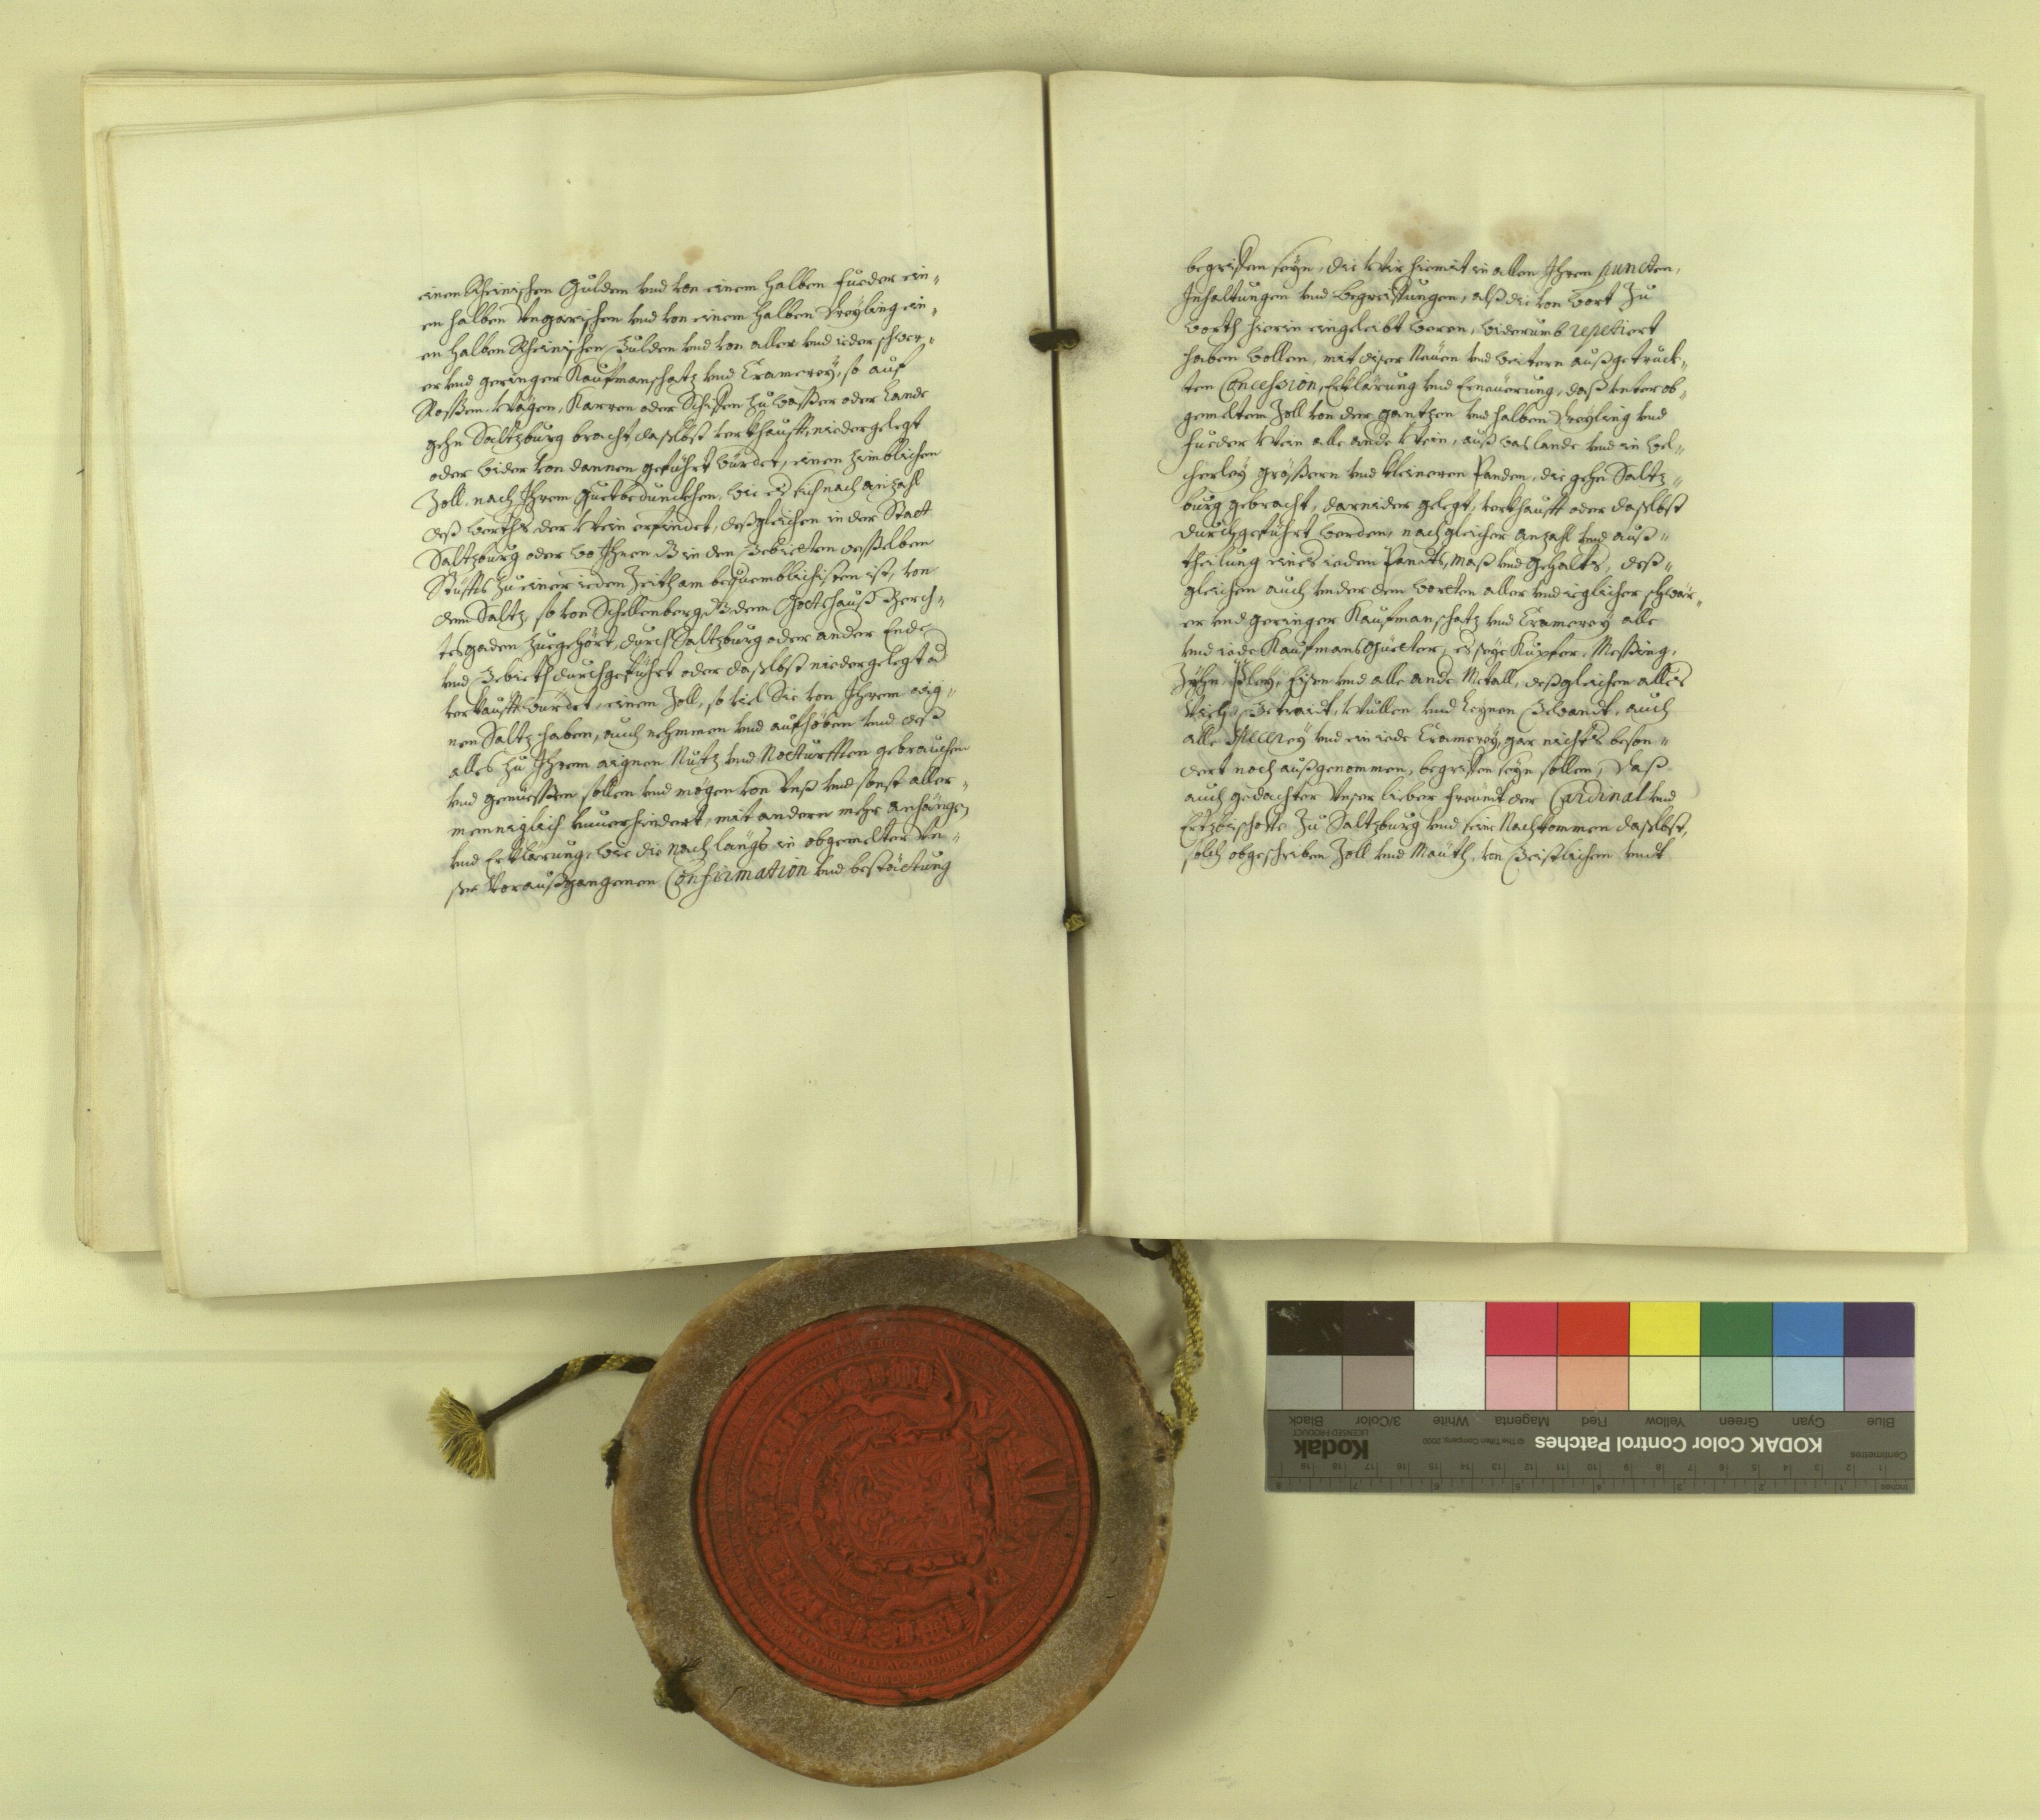 einen Rheinischen Gulden vnd von einem halben Fueder ein„
en halben Vngarischen vnd von einem halben Dreyling ein„
en halben Rheinischen Gulden vnd von aller vnd ieder schwer„
er vnd geringer Kaufmanschatz vnd Cramerey, so auf
Rossen, Wägen, Karren oder Schiffen zu Wasser oder Lande
gehn Saltzburg bracht daselbst verkhaufft, niedergelegt
oder wider von dannen geführt würdet, einen zimblichen
Zoll, nach Ihrem Guetbedunckhen, wie es sich nach anzahl
deß werths der Wein erfindet, deßgleichen in der Statt
Saltzburg oder wo Ihnen in den Gebietten desselben
Stüffts zu einer ieden Zeith am bequemblichisten ist, von
dem Saltz, so von Schellenberg, dem Gottshauß Berch„
tesgaden zuegehört, durch Saltzburg oder ander Ende
vnd Gebieth durchgeführt oder daselbst niedergelegt od
verkaufft würdet, einem Zoll, so viel Sie von Ihrem aig„
nen Saltz haben, auch nehmmen vnd aufheben vnd deß
alles zu Ihrem aignen Nutz vnd Notturfften gebrauchen
vnd geniessen sollen vnd mögen von Vnß vnd sonst aller„
menniglich vnuerhindert, mit andern mehr anhänge,
vnd Erklärung, wie die nach längs in obgemelter Vn„
ser Vorausgangenen Confirmation vnd bestättung
begriffen seyn, die Wir hiemit in allen Ihren puncten,
Inhaltungen vnd begreiffungen, alß die von wort zu
worth hierin eingeleibt weren, widerumb repetiert
haben wollen, mit diser Neuen vnd weitern außgetruck„
ten Concession, Erklärung vnd Erneuerung, daß vnter ob„
gemeltem Zoll von der gantzen vnd halben Dreyling vnd
Fueder Wein alle ande Wein, auß was lande vnd in wel„
cherley größern vnd kleineren Panden, die gehn Saltz„
burg gebracht, darnider gelegt, verkhaufft oder daselbst
durchgeführt werden, nach gleicher anzahl vnd auß„
theilung eines ieden Pandts, maß vnd gehalts, deß„
gleichen auch vnder dem worten aller vnd ieglicher schwär„
er vnd geringer Kaufmanschatz vnd Cramerey alle
vnd iede Kaufmansgüetter, es seye Kupfer, Messing,
Zyhn, Pley, Eisen vnd alle ande Metall, deßgleichen alles
Viech, Getraidt, Wullen vnd Leynen Gewandt, auch
alle Specerey vnd ein iede Cramerey, gar nichts beson„
dert noch außgenommen, begriffen seyn sollen, Daß
auch gedachter Vnser lieber Freundt der Cardinal vnd
Ertzbischoffe zu Saltzburg vnd seine Nachkommen daselbst,
solch obgeschriben Zoll vnd Mauth, von Geistlichen vndt
KODAK Color Control Patches
Kodak
LICENSED PRODUCT
© The Tiffen Company, 2000
Blue Cyan Green Yellow Red Magenta White 3/Color Black
Centimetres
Inches